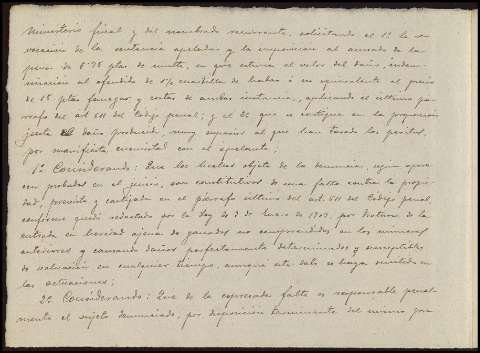 Ministerio fiscal y del nombrado recurrente, solicitando el 1º la re-
vocación de la sentencia apelada y la imposición al acusado de la
pena de 8'75 ptas de multa, en que estima el valor del daño, indem-
nización al ofendido de 1½ cuartilla de habas ó su equivalente al precio
de 18 ptas fanega y costas de ambas instancias, aplicando el último pa-
rrafo del art 611 del Código penal; y el 2º que se castigue en la proporción
justa el daño producido, muy superior al que han tasado los peritos,
por manifiesta enemistad con el apelante;
1º Considerando: Que los hechos objeto de la denuncia, según apare-
cen probados en el juicio, son constitutivos de una falta contra la propie-
dad, prevista y castigada en el párrafo último del art. 611 del Código penal,
conforme quedó redactado por la Ley de 3 de Enero de 1907, por tratarse de la
entrada en heredad ajena de ganados no comprendidos en los números
anteriores y causando daños perfectamente determinados y susceptibles
de valuación en cualquier tiempo, aunque este dato se haya omitido en
las actuaciones;
2º Considerando: Que de la expresada falta es responsable penal-
mente el sujeto denunciado, por disposición terminante del mismo pre-